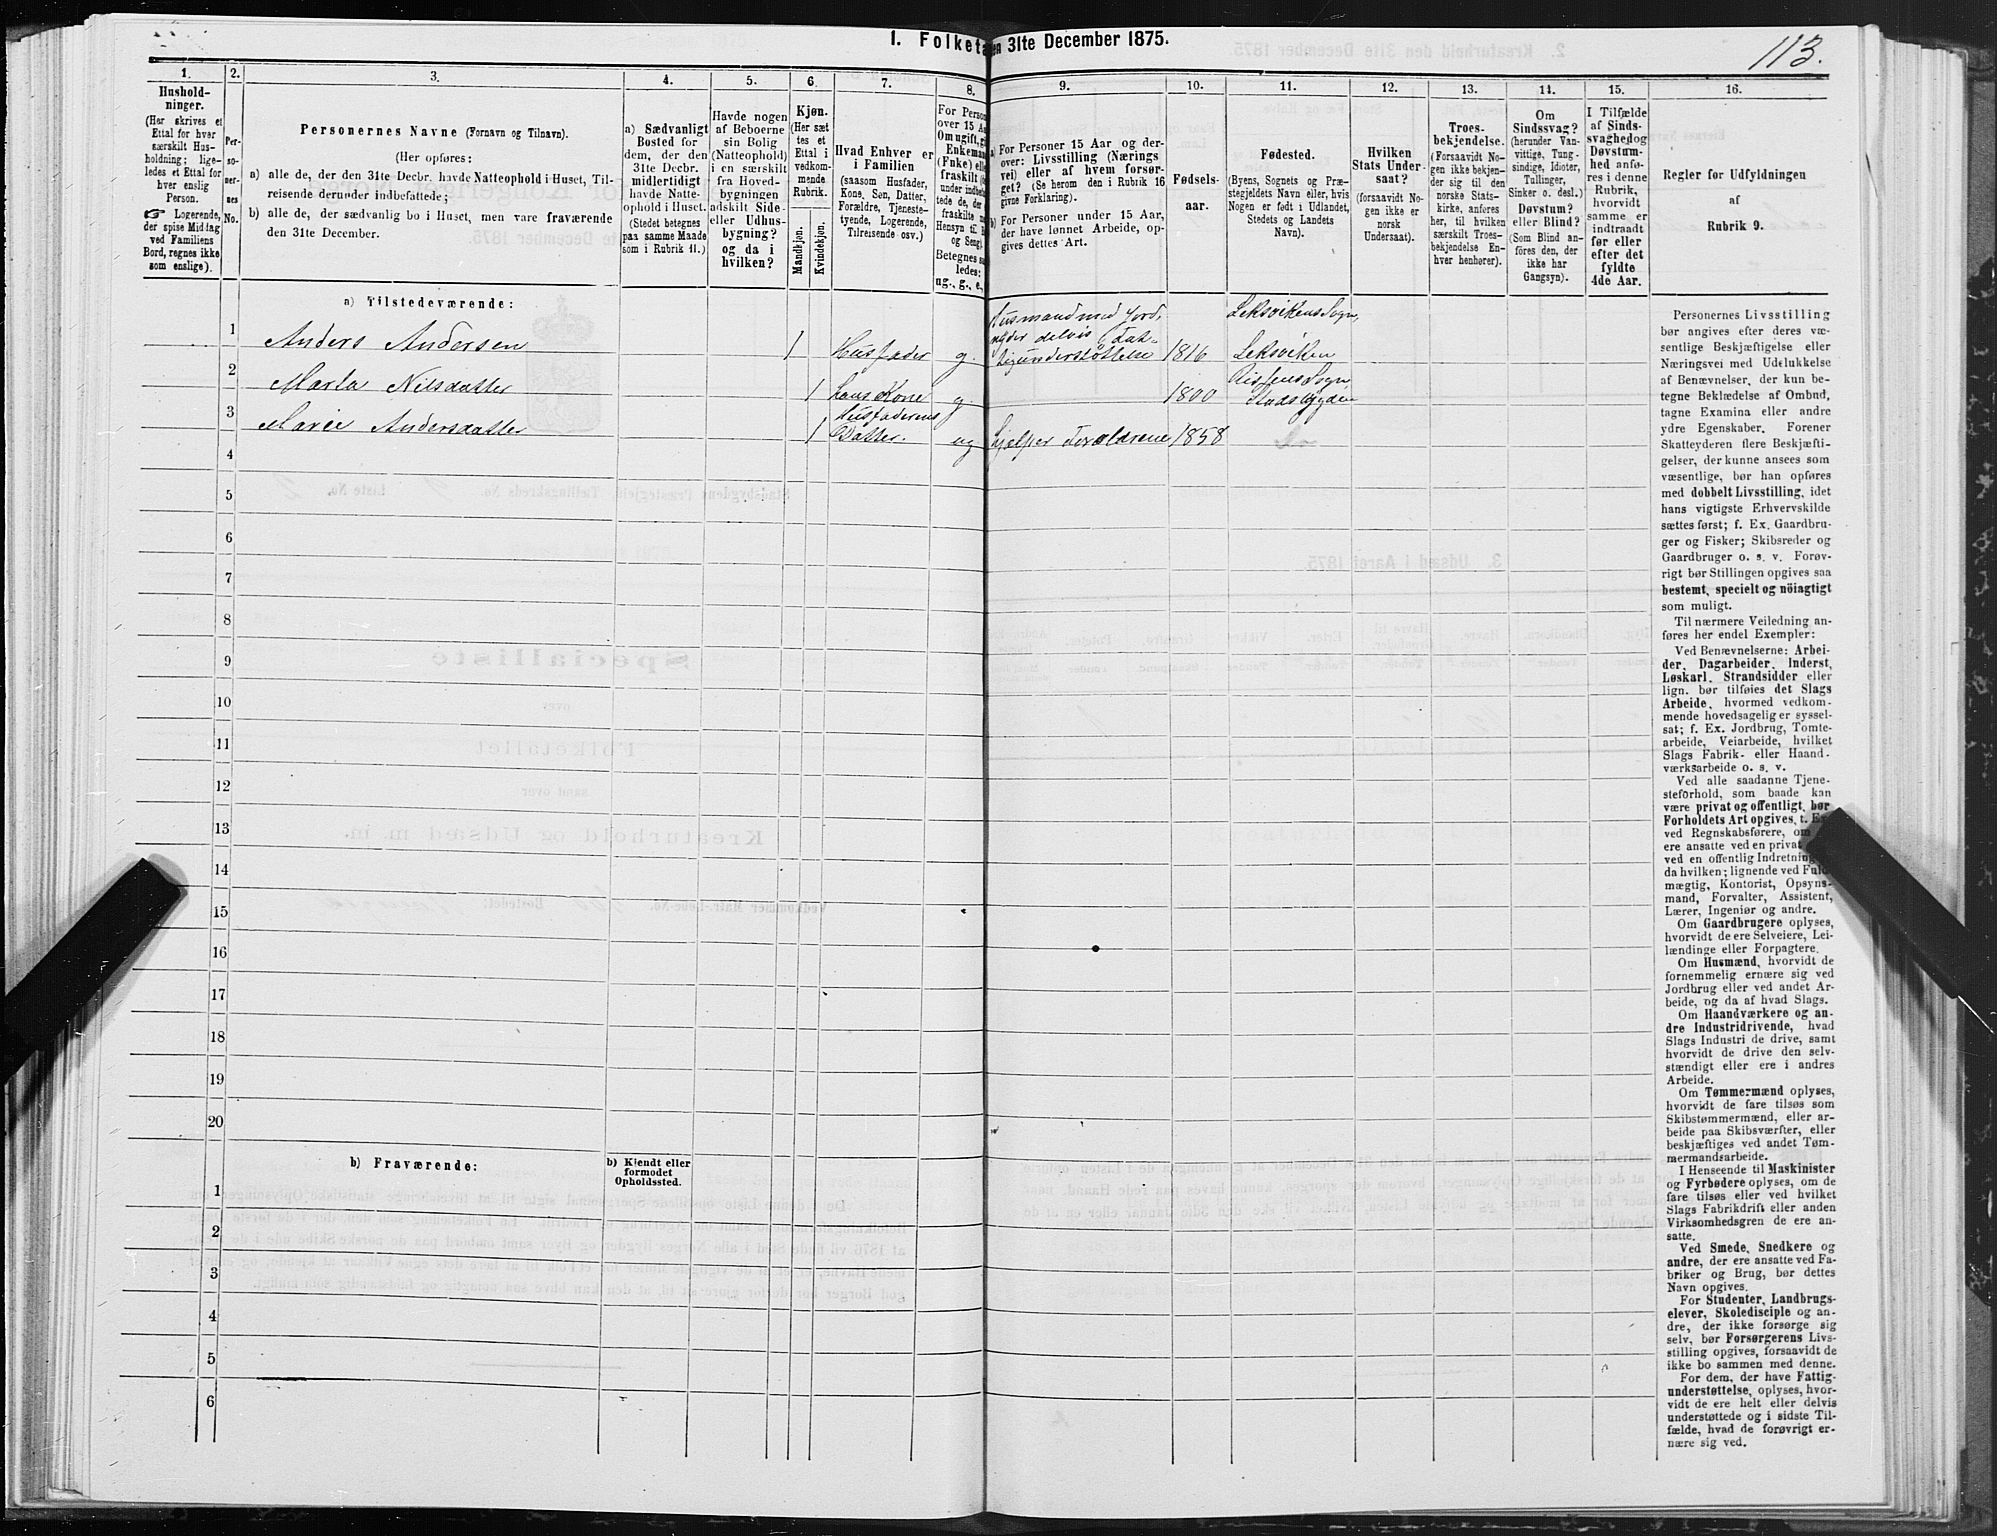 113.
1. Folketa
en 31te December 1875.
1.
Hushold-
ninger.
(Her skrives et
Ettal for hver
særskilt Hus-
holdning; lige-
ledes et Ettal for
hver enslig
Person.
☞ Logerende,
der spise Middag
ved Familiens
Bord, regnes ikke
som enslige).
2.
Per-
so-
ner-
nes
No.
3.
Personernes Navne (Fornavn og Tilnavn).
(Her opføres:
a) alle de, der den 31te Decbr. havde Natteophold i Huset, Til-
reisende derunder indbefattede;
b) alle de, der sædvanlig bo i Huset, men vare fraværende
den 31te December.
4.
a) Sædvanligt
Bosted for
dem, der den
31te Decbr.
midlertidigt
havde Natte-
ophold i Huset.
(Stedet betegnes
paa samme Maade
som i Rubrik 11.)
5.
Havde nogen
af Beboerne
sin Bolig
(Natteophold)
i en særskilt
fra Hoved-
bygningen
adskilt Side-
eller Udhus-
bygning?
og da i
hvilken?
6.
Kjøn.
(Her sæt
tes et
Ettal i
vedkom-
mende
Rubrik.
Mandkjøn.
Kvindekjøn.
7.
Hvad Enhver er
i Familien
(saasom Husfader,
Kone, Søn, Datter,
Forældre, Tjeneste-
tyende, Logerende,
Tilreisende osv.)
8.
For Person
over 15 Aa
Om ugift, gi
Enkeman
(Fnke) elle
fraskilt (
under indbe
tede de, de
fraskilte
Hensyn til
og Seng).
Betegnes sa
ledes:
ug., g., e.,
9.
a) For Personer 15 Aar og der-
over: Livsstilling (Nærings
vei) eller af hvem forsør-
get? (Se herom den i Rubrik 16
givne Forklaring).
b) For Personer under 15 Aar,
der have lønnet Arbeide, op-
gives dettes Art.
10.
Fødsels-
aar.
11.
Fødested.
(Byens, Sognets og Præ-
stegjeldets Navn eller, hvis
Nogen er født i Udlandet,
Stedets og Landets
Navn).
12.
Hvilken
Stats Under-
saat?
(forsaavidt No-
gen ikke er
norsk
Undersaat).
13.
Troes-
bekjendelse.
(Forsaavidt No-
gen ikke bekjen-
der sig til den
norske Stats-
kirke, anføres
her, til hvilken
særskilt Troes-
bekjendelse En-
hver henhører).
14.
Om
Sindssvag?
(herunder Van-
vittige, Tung-
sindige, Idioter,
Tullinger,
Sinker o. desl.)
Døvstum?
eller Blind?
(Som Blind an-
føres den, der
ikke har
Gangsyn).
15.
I Tilfælde
af Sinds-
svaghed og
Døvstum-
hed anfø-
res i denne
Rubrik,
hvorvidt
samme er
indtraadt
før eller
efter det
fyldte
4de Aar.
16.
Regler for Udfyldningen
af
Rubrik 9.
a) Tilstedeværende:
Husmand med Jord, Leksvikens Sogn,
1 Anders Andersen 1 Husfader g. nyder delvis Fat-
tigunderstøttelse 1816 Leksviken
2 Marta Nilsdatter 1 hans Kone g. 1800 Rissens Sogn Stadsbygden
3 Marie Andersdatter 1 Husfaderens Datter. ug hjelper Forældrene 1858 do
4
5
6
7
8
9
10
11
12
13
14
15
16
17
18
19
20
b) Fraværende:
b) Kjendt eller
formodet
Opholdssted.
1
2
3
4
5
6
Personernes Livsstilling
bør angives efter deres væ-
sentlige Beskjæftigelse eller
Næringsvei med Udelukkelse
af Benævnelser, der kun be-
tegne Beklædelse af Ombud,
tagne Examina eller andre
ydre Egenskaber. Forener
Skatteyderen flere Beskjæfti-
gelser, der kunne ansees som
væsentlige, bør han opføres
med dobbelt Livsstilling, idet
hans vigtigste Erhvervskilde
sættes først; f. Ex. Gaardbru-
ger og Fisker; Skibsreder og
Gaardbruger o. s. v. Forøv-
rigt bør Stillingen opgives saa
bestemt, specielt og nöiagtigt
som muligt.
Til nærmere Veiledning an-
føres her endel Exempler:
Ved Benævnelserne: Arbei-
der, Dagarbeider, Inderst,
Løskarl, Strandsidder eller
lign. bør tilføies det Slags
Arbeide, hvormed vedkom-
mende hovedsagelig er syssel-
sat; f. Ex. Jordbrug, Tomte-
arbeide, Veiarbeide, hvilket
Slags Fabrik- eller Haand-
værksarbeide o. s. v.
Ved alle saadanne Tjene-
steforhold, som baade kan
være privat og offentligt, bør
Forholdets Art opgives, f. E
ved Regnskabsførere, om
ere ansatte ved en privat
ved en offentlig Indretning
da hvilken; lignende ved Fuld
mægtig, Kontorist, Opsyns-
mand, Forvalter, Assistent,
Lærer, Ingeniør og andre.
Om Gaardbrugere oplyses,
hvorvidt de ere Selveiere, Lei-
lændinge eller Forpagtere.
Om Husmænd, hvorvidt de
fornemmelig ernære sig ved
Jordbrug eller ved andet Ar-
beide, og da af hvad Slags.
Om Haandværkere og an-
dre Industridrivende, hvad
Slags Industri de drive, samt
hvorvidt de drive den selv-
stændigt eller ere i andres
Arbeide.
Om Tømmermænd oplyses,
hvorvidt de fare tilsøs som
Skibstømmermænd, eller ar-
beide paa Skibsværfter, eller
beskjæftiges ved andet Tøm-
mermandsarbeide.
I Henseende til Maskinister
og Fyrbødere oplyses, om de
fare tilsøs eller ved hvilket
Slags Fabrikdrift eller anden
Virksomhedsgren de ere an-
satte.
Ved Smede, Snedkere og
andre, der ere ansatte ved Fa-
briker og Brug, bør dettes
Navn opgives.
For Studenter, Landbrugs-
elever, Skoledisciple og an-
dre, der ikke forsørge sig
selv, bør Forsørgerens Livs-
stilling opgives, forsaavidt de
ikke bo sammen med denne.
For dem, der have Fattig-
understøttelse, oplyses, hvor-
vidt de ere helt eller delvis
understøttede og i sidste Til-
fælde, hvad de forøvrigt er-
nære sig ved.